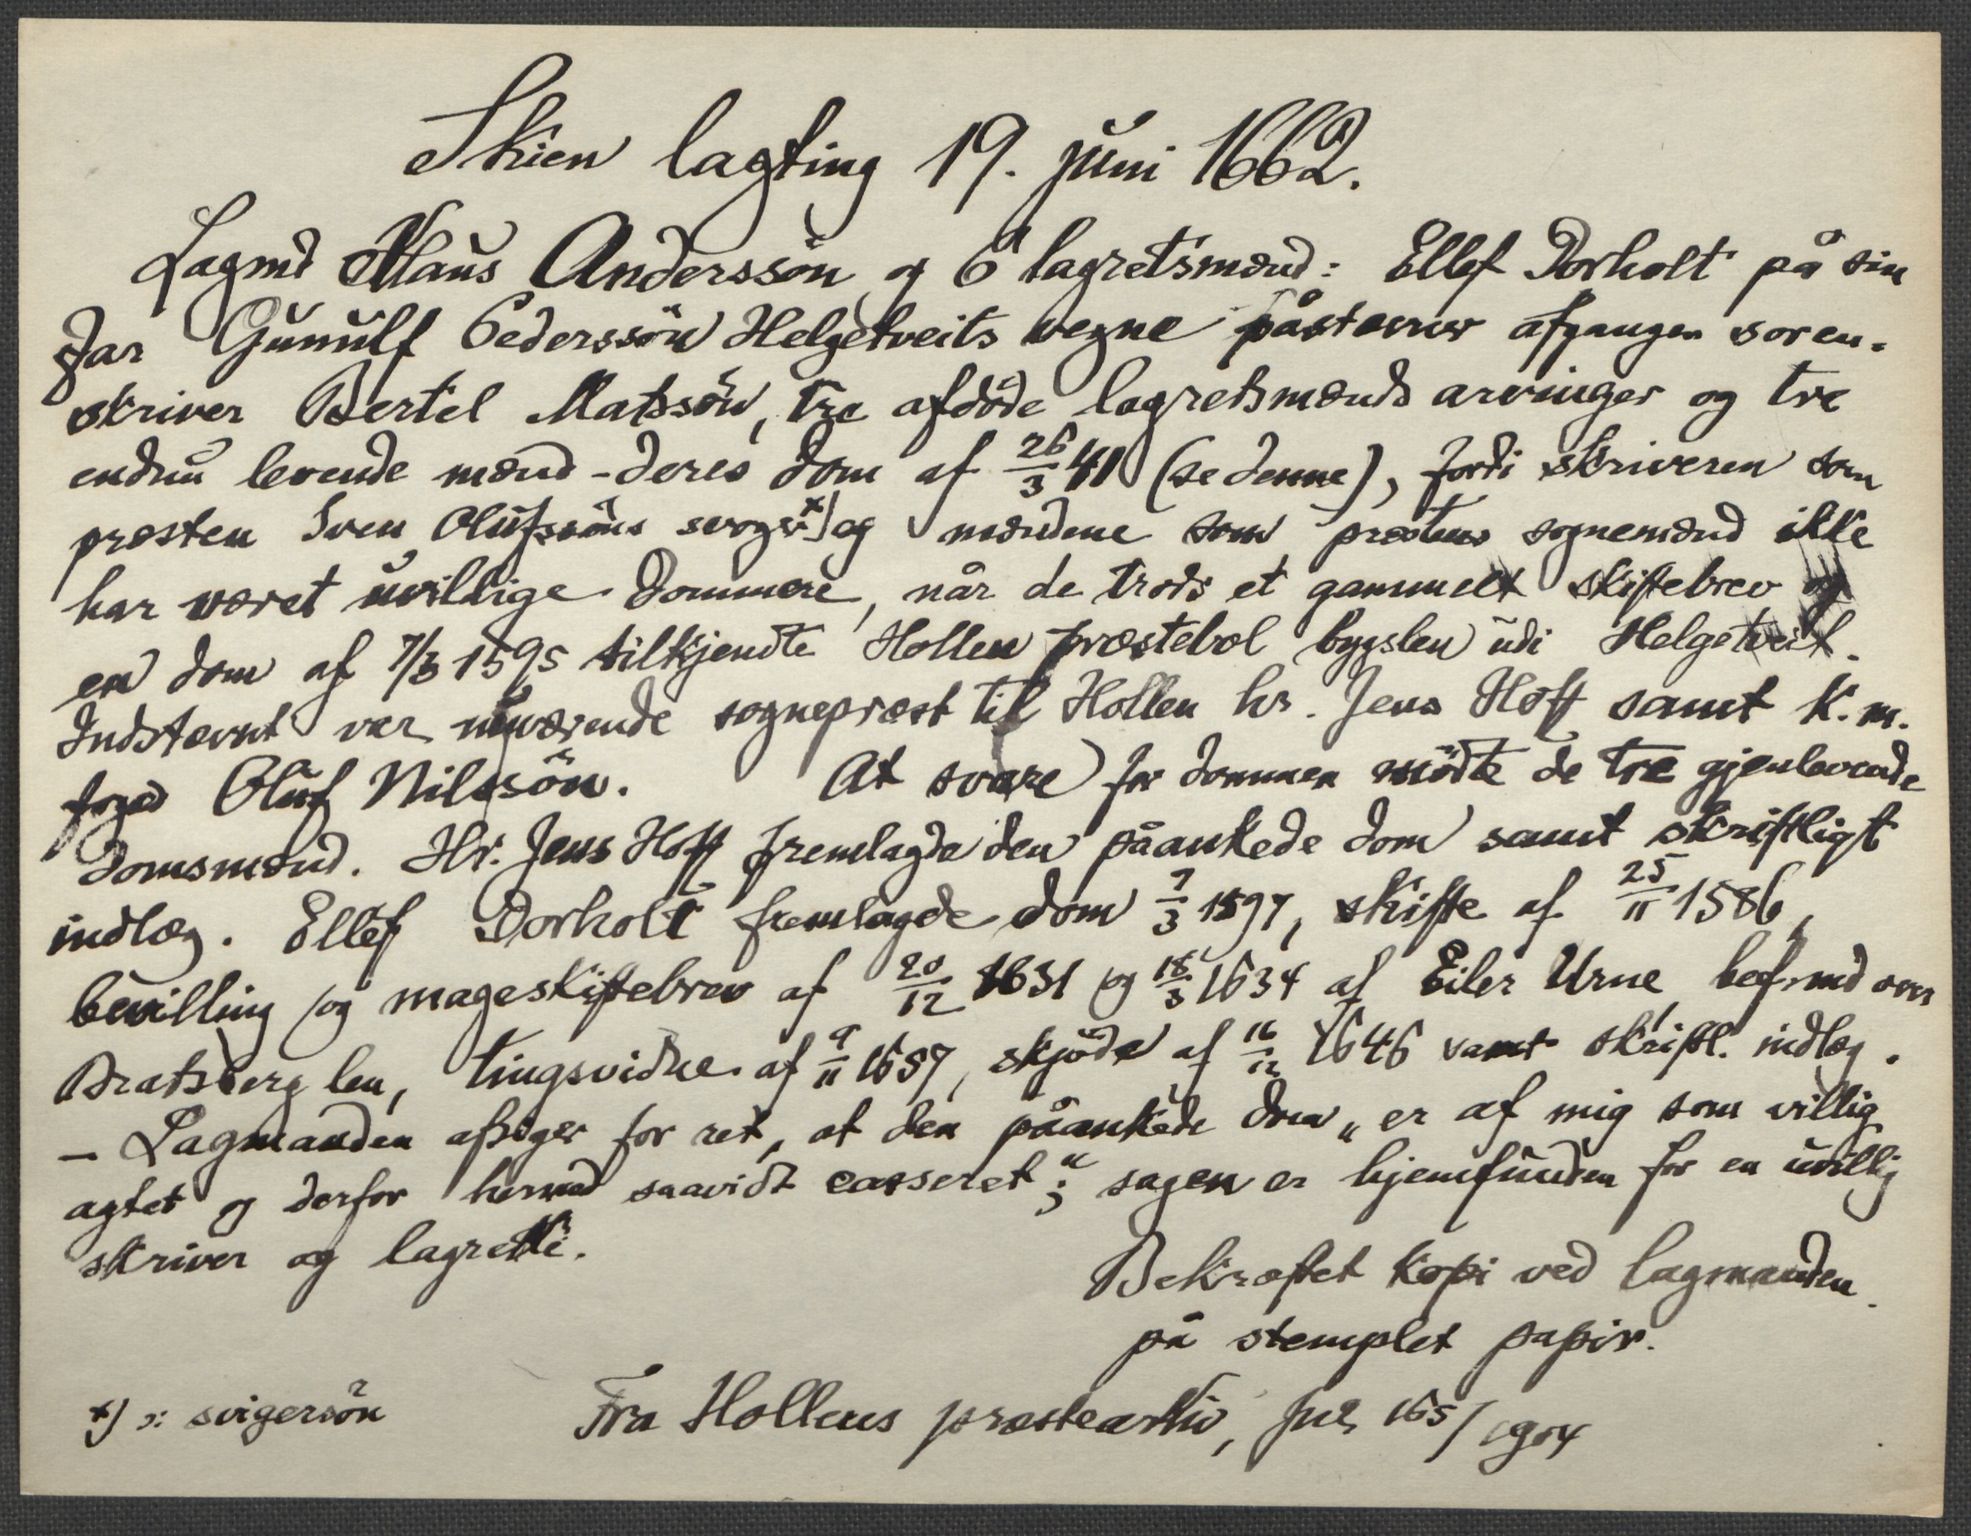 Skien lagting 19. juni 1662.
Lagmd Klaus Anderssön og 6 lagretsmænd: Ellef Dorholt på sin
far Gunulf Pederssön Helgetveits vegne påstevner afgangen soren-
skriver Bertel Matssön, tre afdöde lagretsmænds arvinger og tre
endnu levende mænd - deres dom af 26/3 41 (se denne), fordi skriveren som
præsten Sven Olufssöns svoger x) og mændene som præstens sognemænd ikke
har været uvildige dommere, når de trods et gammelt skiftebrev og
en dom af 7/3 1595 tilkjendte Hollen præstebol bygslen udi Helgetveit.
Indstævnt var nuværende sognepræst til Hollen hr. Jens Hoff samt K. m.
foged Oluf Nilssön. At svare for dommen mödte de tre gjenlevende
domsmænd. Hr. Jens Hoff fremlagde den påankede dom samt skriftligt
indlæg. Ellef Dorholt fremlagde dom 7/3 1597, skifte af 25/11 1586,
bevilling og mageskiftebrev af 20/12 1631 og 18/3 1634 af Eiler Urne, bef.md over
Bratsberg len, tingsvidne af 9/11 1637, skjöde af 16/12 1646 samt skriftl. indlæg.
- Lagmanden afsiger for ret, at den påankede dom „er af mig som villig
agtet og derfor hermed saavidt casseret;“ sagen er hjemfunden for en uvillig
skriver og lagrette.
Bekræftet kopi ved lagmanden
på stemplet papir.
x) ɔ: svigersön
Fra Hollens præstearkiv, jnr 165/1904